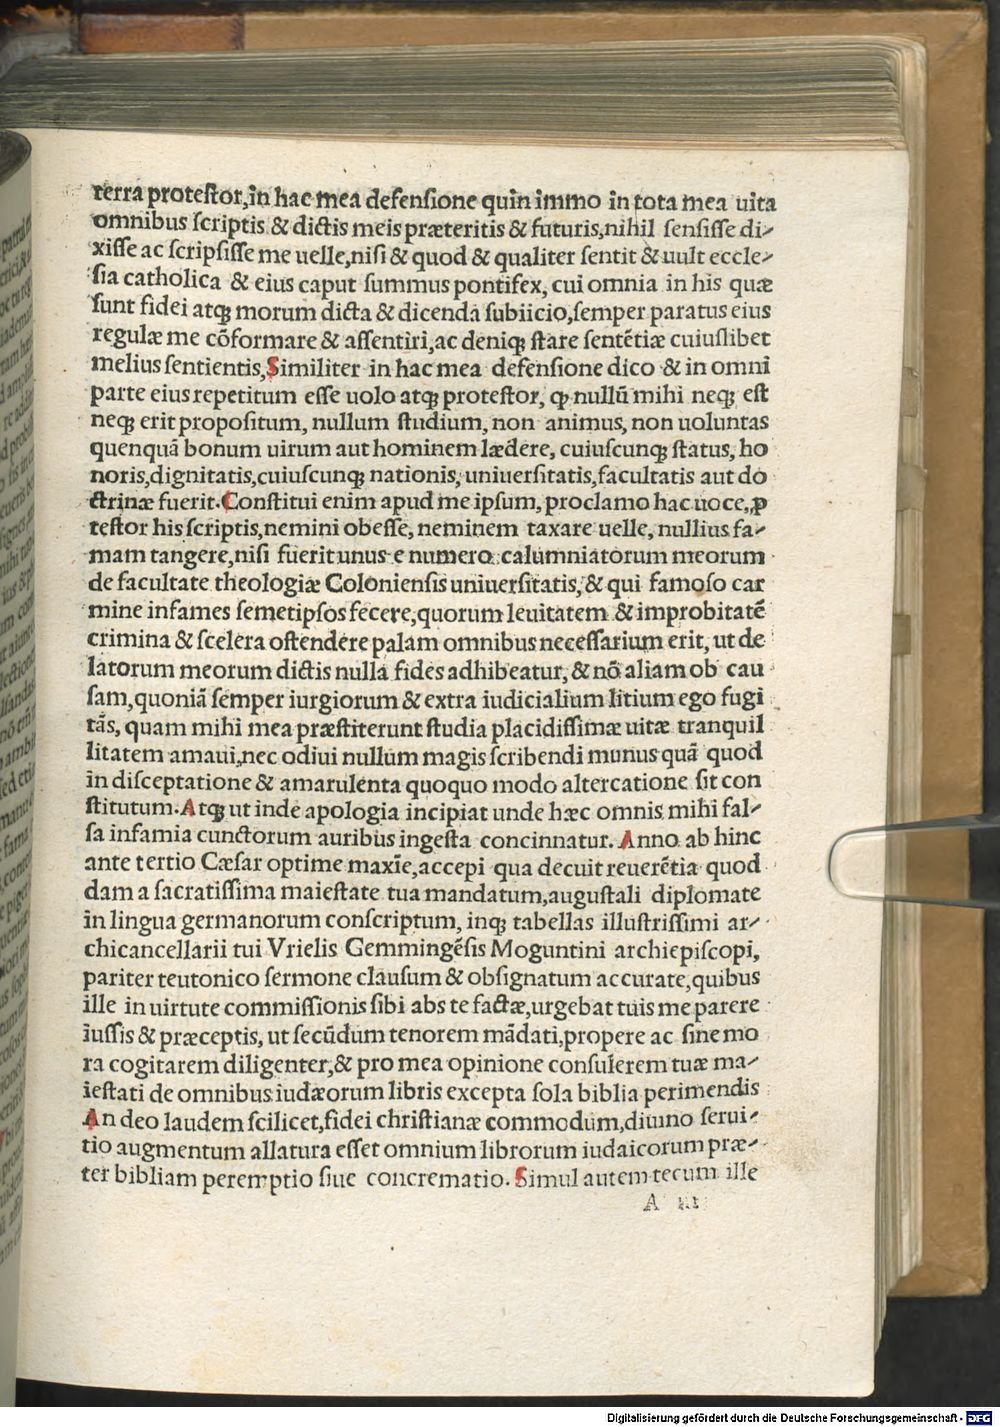 terra protestor,in hac mea defensione quin immo in tota mea uita
omnibus scriptis & dictis meis præteritis & futuris,nihil sensisse di-
xisse ac scripsisse me uelle,nisi & quod & qualiter sentit & uult eccle-
sia catholica & eius caput summus pontifex, cui omnia in his quæ
sunt fidei atqꝫ morum dicta & dicenda subiicio,semper paratus eius
regulæ me cōformare & assentiri,ac deniqꝫ stare sentētiæ cuiuslibet
melius sentientis,Similiter in hac mea defensione dico & in omni
parte eius repetitum esse uolo atqꝫ protestor, ꝙ nullū mihi neqꝫ est
neqꝫ erit propositum, nullum studium, non animus, non uoluntas
quenquā bonum uirum aut hominem lædere, cuiuscunqꝫ status, ho
noris,dignitatis,cuiuscunqꝫ nationis, uniuersitatis,facultatis aut do
ctrinæ fuerit.Constitui enim apud me ipsum, proclamo hac uoce,ꝓ
testor his scriptis,nemini obesse, neminem taxare uelle, nullius fa-
mam tangere,nisi fuerit unus e numero calumniatorum meorum
de facultate theologiæ Coloniensis uniuersitatis, & qui famoso car
mine infames semetipsos fecere,quorum leuitatem & improbitatē
crimina & scelera ostendere palam omnibus necessarium erit, ut de
latorum meorum dictis nulla fides adhibeatur, & nō aliam ob cau
sam,quoniā semper iurgiorum & extra iudicialium litium ego fugi
tās, quam mihi mea præstiterunt studia placidissimæ uitæ tranquil
litatem amaui,nec odiui nullum magis scribendi munus quā quod
in disceptatione & amarulenta quoquo modo altercatione sit con
stitutum.Atqꝫ ut inde apologia incipiat unde hæc omnis mihi fal-
sa infamia cunctorum auribus ingesta concinnatur. Anno ab hinc
ante tertio Cæsar optime maxīe,accepi qua decuit reuerētia quod
dam a sacratissima maiestate tua mandatum,augustali diplomate
in lingua germanorum conscriptum, inqꝫ tabellas illustrissimi ar-
chicancellarii tui Vrielis Gemmingēsis Moguntini archiepiscopi,
pariter teutonico sermone clausum & obsignatum accurate,quibus
ille in uirtute commissionis sibi abs te factæ,urgebat tuis me parere
iussis & præceptis, ut secūdum tenorem mādati,propere ac sine mo
ra cogitarem diligenter,& pro mea opinione consulerem tuæ ma-
iestati de omnibus iudæorum libris excepta sola biblia perimendis
An deo laudem scilicet,fidei christianæ commodum,diuino serui-
tio augmentum allatura esset omnium librorum iudaicorum præ-
ter bibliam peremptio siue concrematio. Simul autem tecum ille
A iii
Digitalisierung gefördert durch die Deutsche Forschungsgemeinschaft - DFG